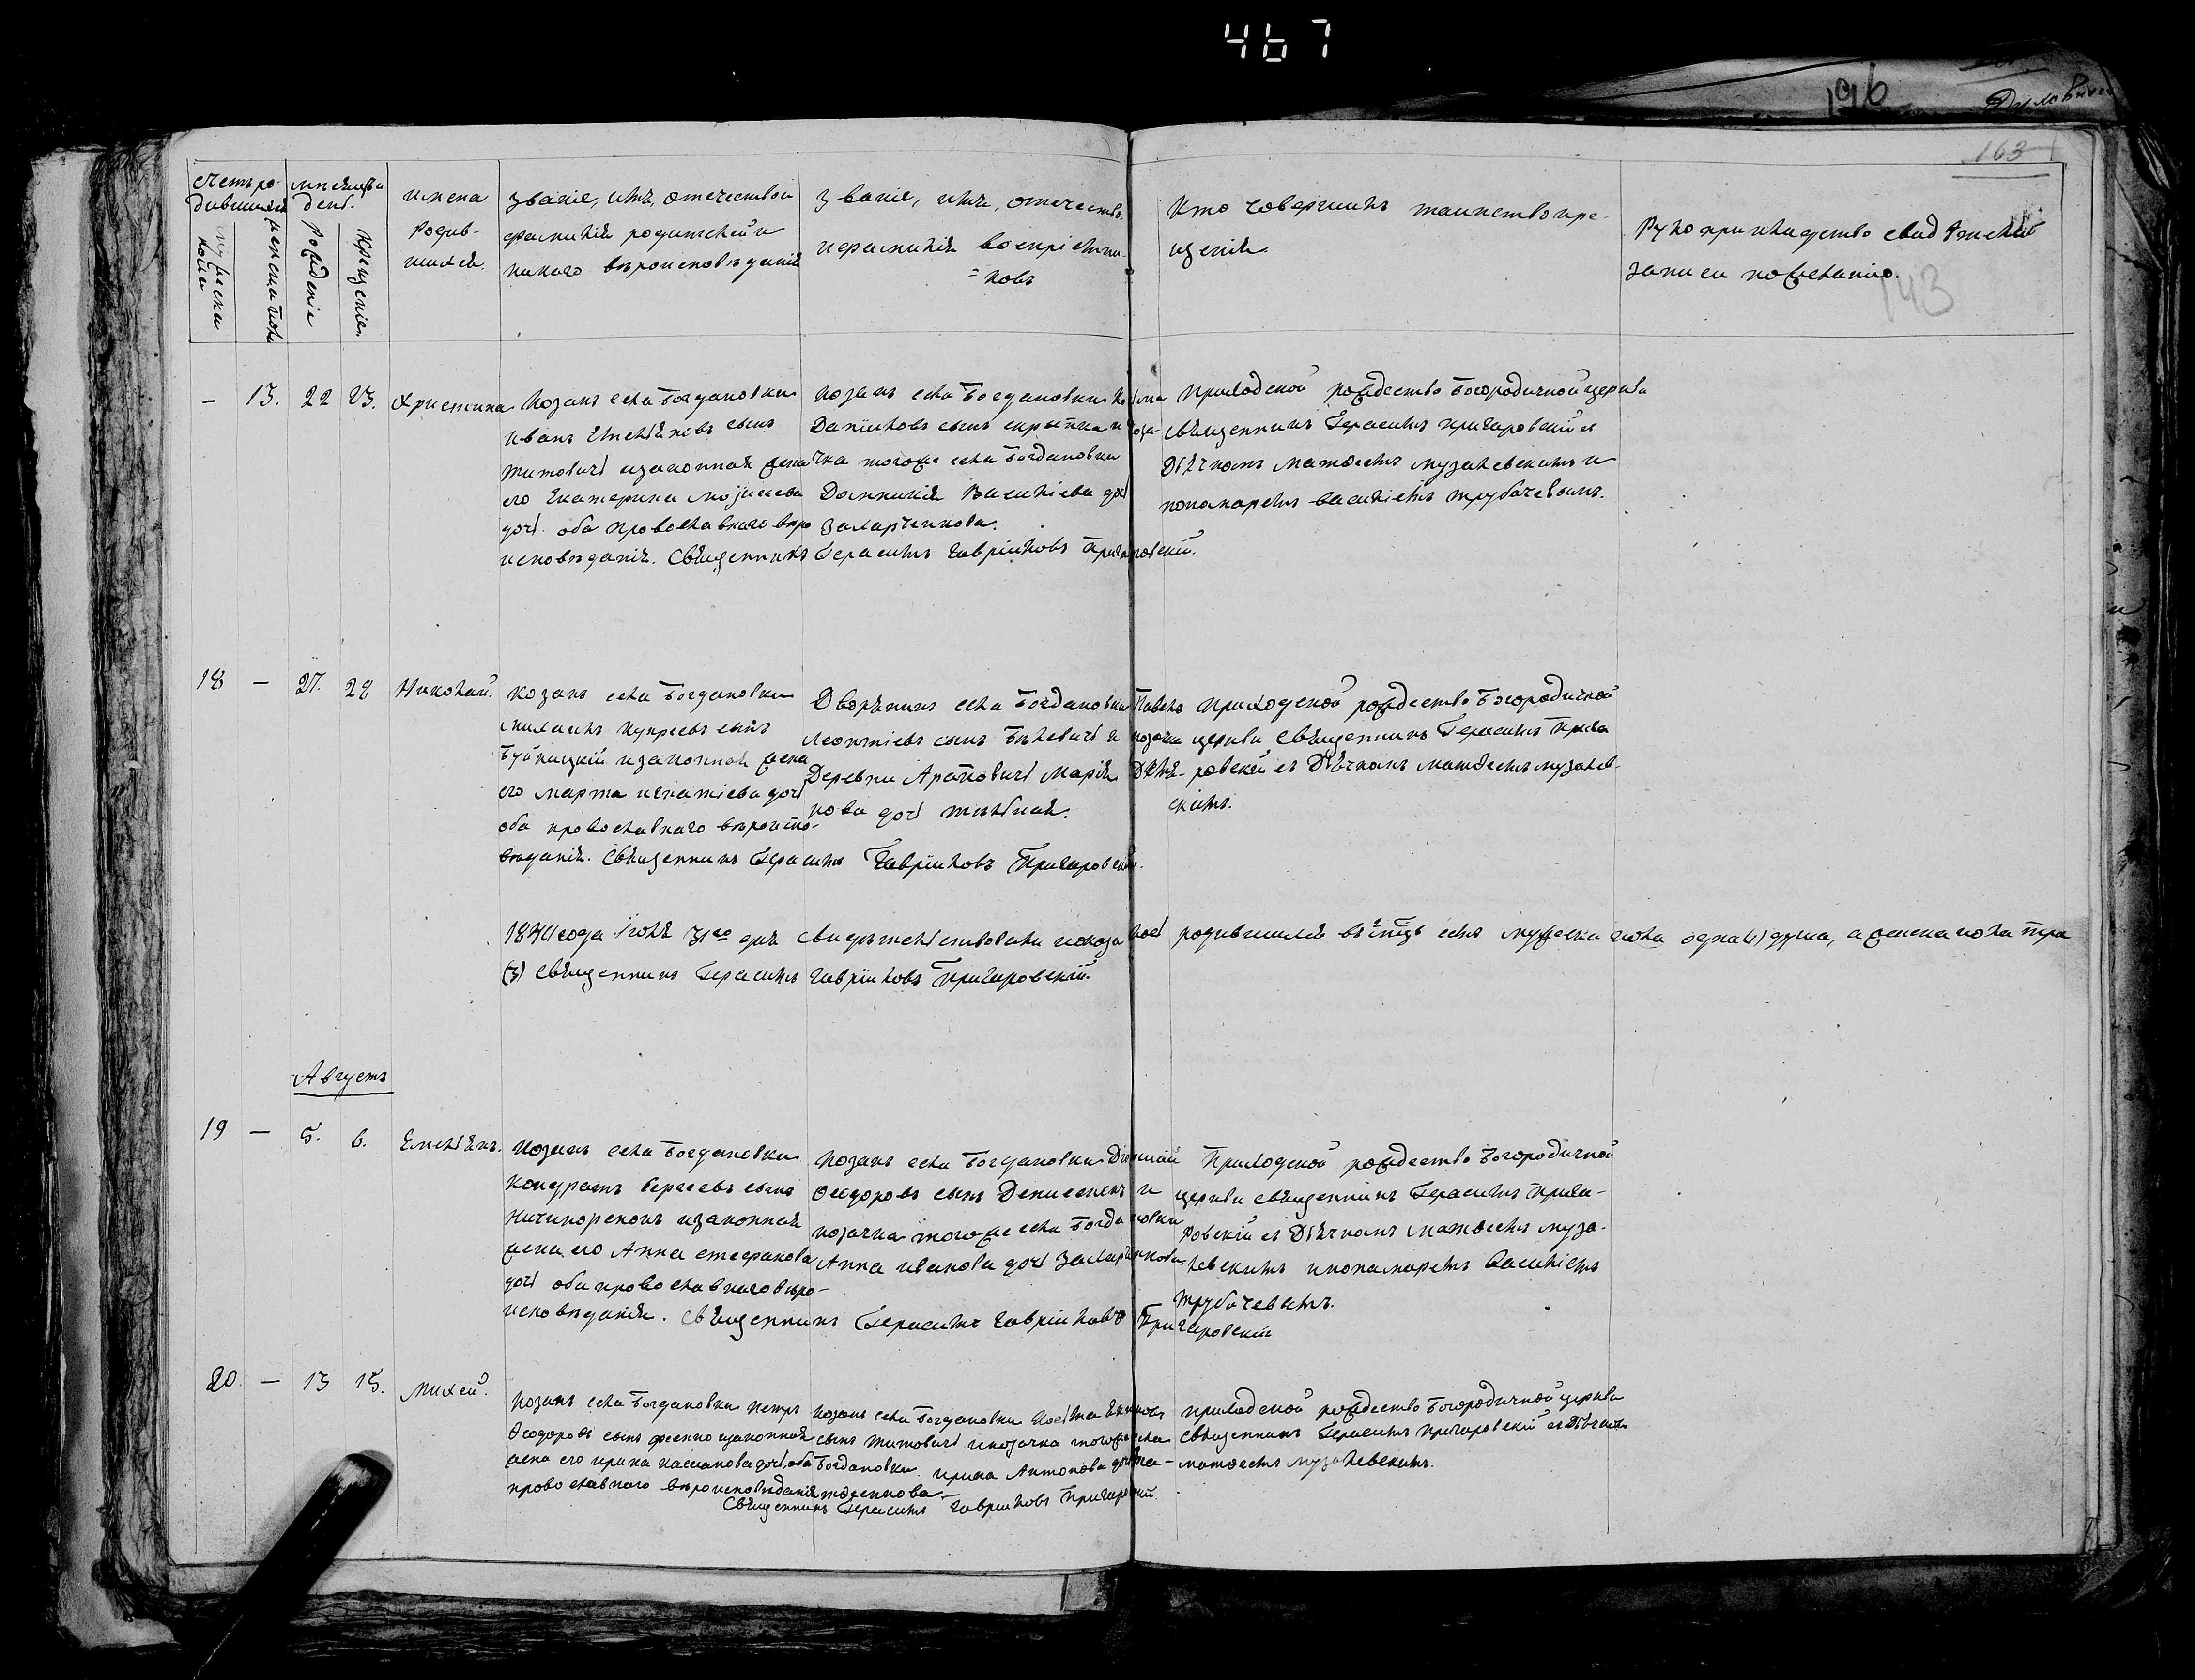 467
196
163
143
Счетъ ро-
дившихся
мужеска
пола
женска пола
Мѣсяцъ и
день.
Рожденіе
Крещеніе.
Имена
родив-
шихся.
Званіе, имя, отечество и
фамилія родителей и
какого вѣроисповѣданія
Званіе, имя, отечество
и фамилія воспріемни-
=ковъ
Кто совершилъ таинство кре-
щенія
Рукоприкладство свидѣтелей
записи по желанію.
– 13. 22 23. Христина
Козакъ села Богдановки
Иванъ Емельяновъ сынъ
Титовичь и законная жена
его Екатерина Моисеева
дочь оба провославнаго вѣро
исповѣданія. Священникъ Герасимъ Гавріиловъ Пригаровскій.
Козакъ села Богдановки
Даніиловъ сынъ Скрыпка и коза-
чка тогоже села Богдановки
Домникія Василіева дочь
Заларченкова.
Приходской рождество Богородичной церкви
священникъ Герасимъ Пригаровскій съ
Дьячкомъ Матѳеемъ Музалевскимъ и
пономаремъ Василіемъ Трубачевымъ.
18 – 27. 28 Николай.
Козакъ села Богдановки
Михаилъ Купреевъ сынъ
Буйницкій и законная жена
его Марта Игнатіева дочь
оба провославнаго вѣроиспо-
вѣданія. Священникъ Герасимъ Гавріиловъ Пригаровскій.
Дворянинъ села Богдановки Павелъ
Леонтіевъ сынъ Бѣлевичь и козачка
Деревни Араповичь Марія Демья-
нова дочь
Приходской рождество Богородичной
церкви Священникъ Герасимъ Прига
ровскій съ Дьячкомъ Матѳеемъ Музалев-
скимъ.
года Іюля 31го дня свидѣтельствовали показалось родившихся въ мцѣ семъ мужеска пола одна (1) душа, а женска пола три
(3) Священникъ Герасимъ Гавріиловъ Пригаровскій.
Августъ
19 – 5. 6. Емельянъ.
Козакъ села Богдановки
Кондратъ Сергеевъ сынъ
Ничипоренокъ и законная
жена его Анна Стефанова
дочь оба провославнаго вѣро-
исповѣданія. Священникъ Герасимъ Гавріиловъ Пригаровскій
Козакъ села Богдановки Діонисій
Ѳеодоровъ сынъ Денисенокъ и
козачка тогоже села Богдановки
Анна Иванова дочь Заларченкова
Приходской рождество Богородичной
церкви священникъ Герасимъ Прига-
ровскій съ Дьячкомъ Матѳеемъ Муза-
левскимъ и пономаремъ Василіемъ
Трубачевымъ.
20. – 13 15. Михей.
Козакъ села Богдановки Петръ
Ѳеодоровъ сынъ и законная
жена его Ирина Касіанова дочь, оба
провославнаго вѣроисповѣданія
Священникъ Герасимъ Гавріиловъ Пригаровскій.
Козакъ села Богдановки Косьма
сынъ Титовичь и козачка тогоже села
Богдановки Ирина Антонова дочь
Приходской рождество Богородичной церкви
Священникъ Герасимъ Пригаровскій съ Дьячкомъ
Матѳеемъ Музалевскимъ.